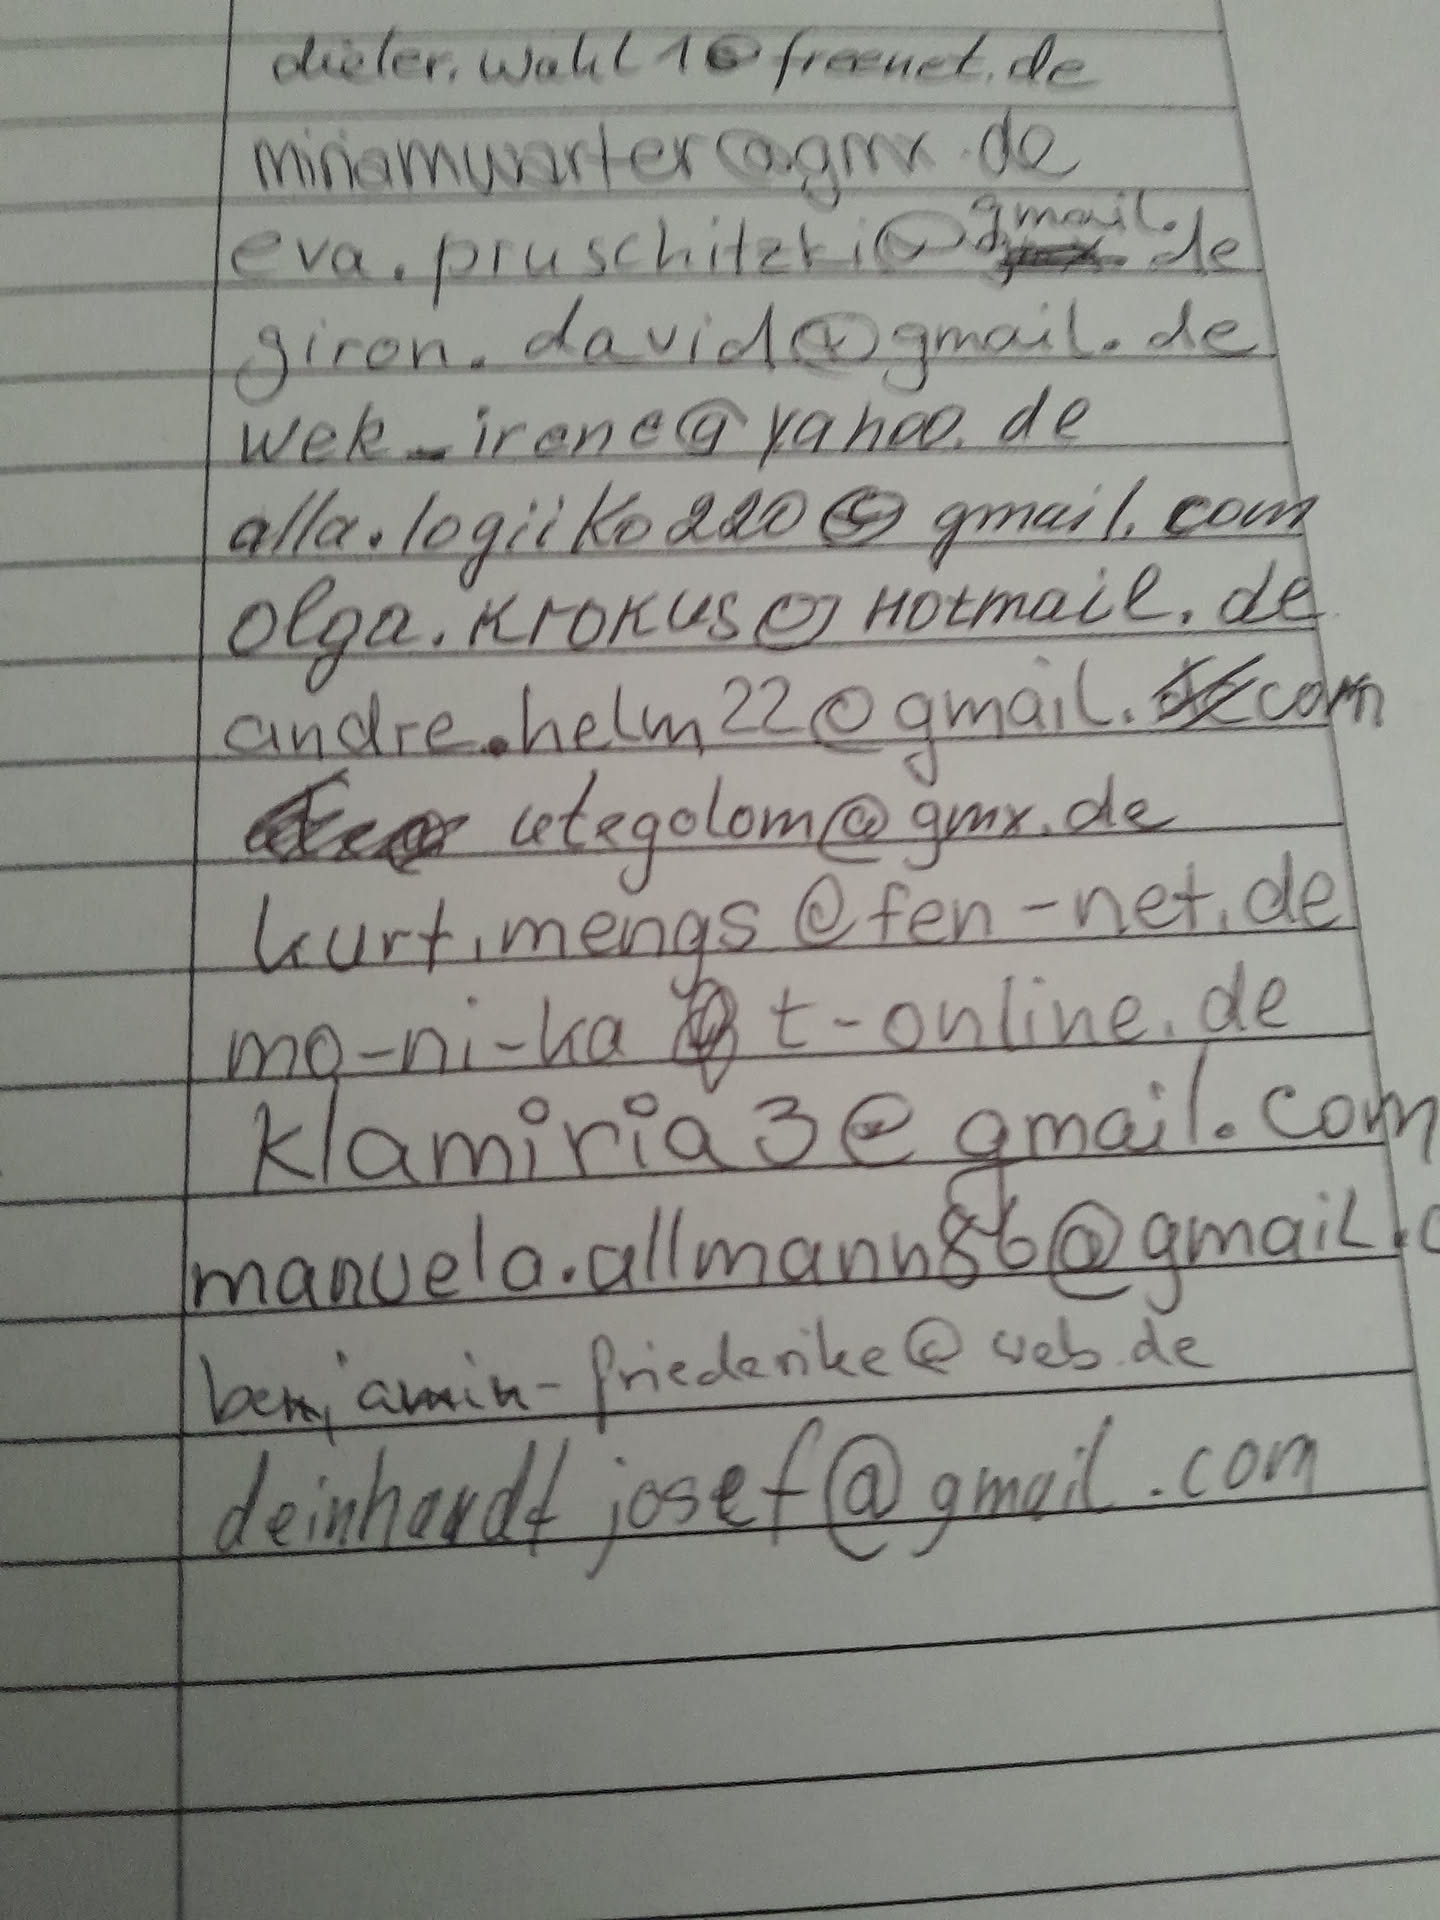 dieter.wahl1@freenet.de
miriamwarter@gmx.de
eva.pruschitzki@gmail.de
giron.david@gmail.de
wek_irene@yahoo.de
alla.logiiko220@gmail.com
olga.krokus@hotmail.de
andre.helm22@gmail.com
utegolom@gmx.de
kurt.mengs@fen-net.de
mo-ni-ka@t-online.de
klamiria3@gmail.com
manuela.allmann86@gmail.c
benjamin-friederike@web.de
deinhardtjosef@gmail.com